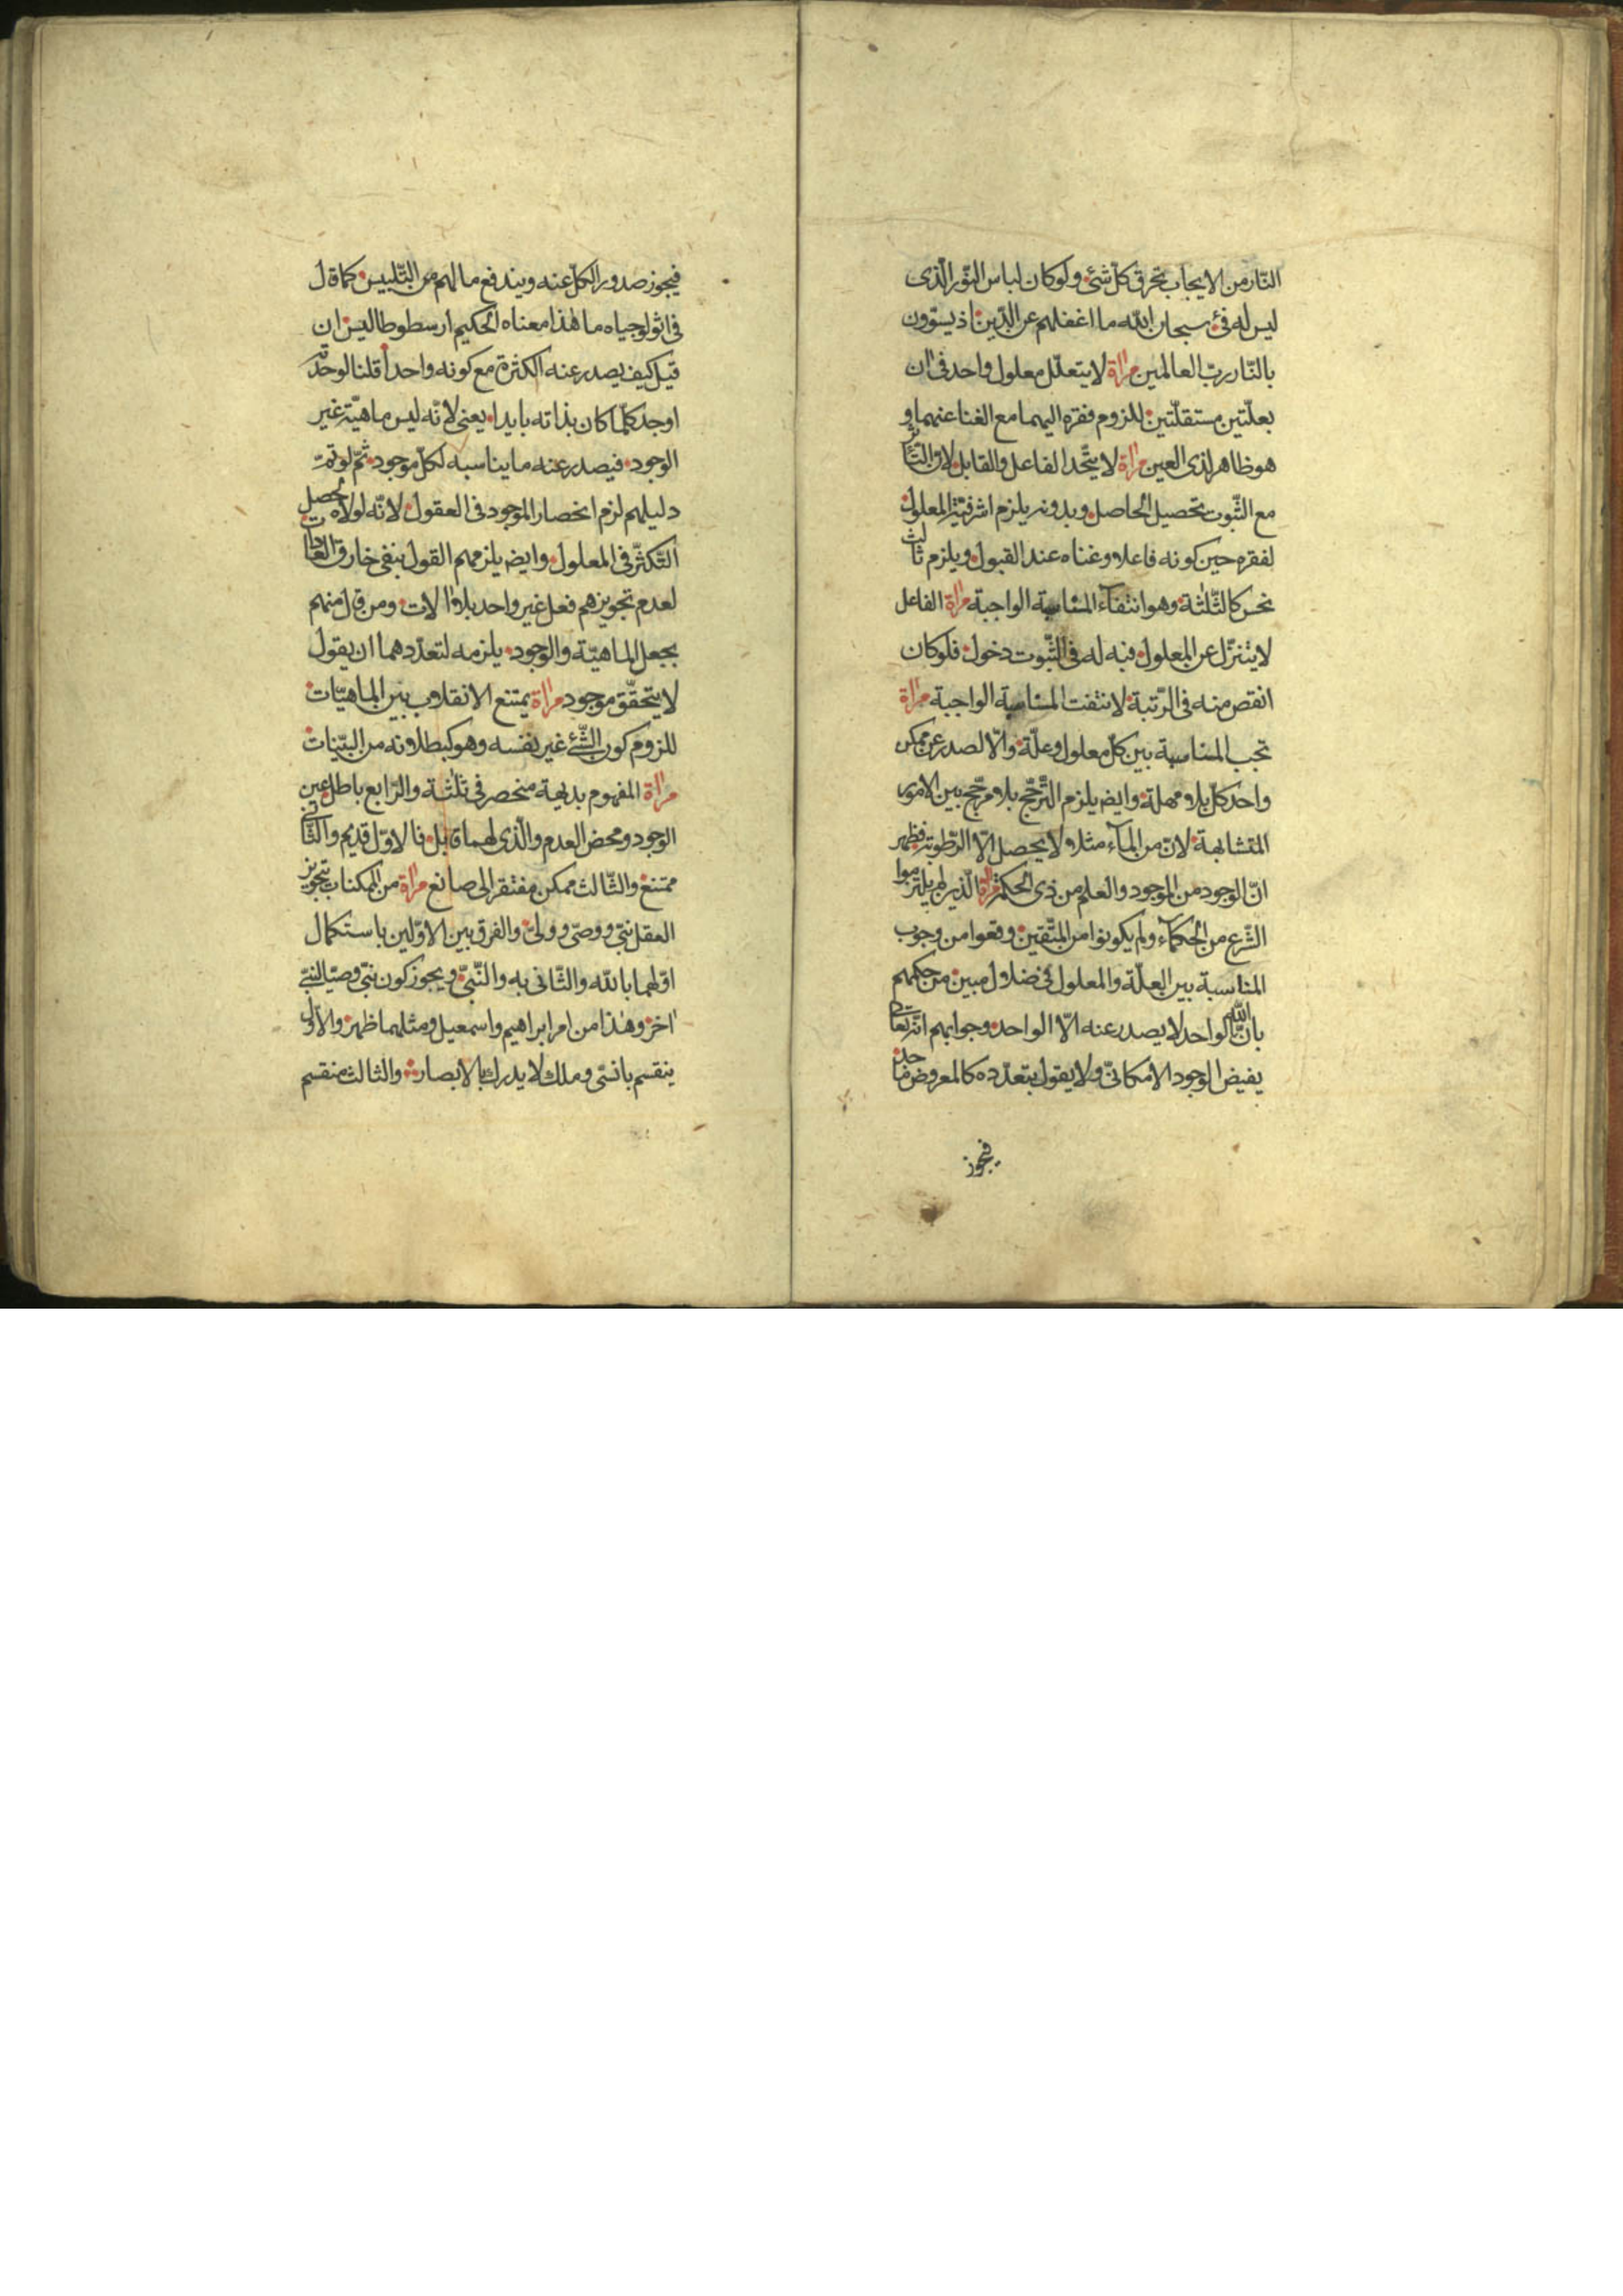 النّار من الايجاب تحرق كلّ شئ ولو كان لباس النّور الّذى
ليس له فئ سبحان الله ما اغفلهم عن الدّين اذ يستوون
بالنّار ربّ العالمين مرآة لا يتعلّل معلول واحد فى ان
بعلّتين مستقلّتين للزوم فقره اليهما مع الغنا عنهما و
هو ظاهر لذى العين مرآة لا يتّحد الفاعل والقابل لان التّأثر
مع الثّبوت تحصيل الحاصل وبدونه يلزم اشرفيّة المعلول
لفقره حين كونه فاعلا وغناه عند القبول ويلزم ثالث
نحس كالثّلثة وهو انتفآء المناسبة الواجبة مرآة الفاعل
لا يتنزّل عن المعلول فيه له فى الثّبوت دخول فلو كان
انقص منه فى الرّتبة لانتفت المناسبة الواجبة مرآة
تجب المناسبة بين كلّ معلول وعلّة والّا لصدر عن ممكن
واحد كلّ بلا مهلة وايضا يلزم التّرجّح بلا مرجّح بين الامور
المتشابهة لانّ من المآء مثلا لا يحصل الّا الرّطوبة فظهر
انّ الوجود من الموجود والعلم من ذى الحكمة مرآة الّذين لم يلتزموا
الشّرع من الحكمآء ولم يكونوا من المتّقين وقعوا من وجوب
المناسبة بين العلّة والمعلول فى ضلال مبين من حكمهم
بانّ الله الواحد لا يصدر عنه الّا الواحد وجوابهم انّه تعالى
يفيض الوجود الامكانىّ ولا يقول بتعدّده كالمعروض احد
فيجوز
فيجوز صدور الكلّ عنه ويندفع ما لهم من التّلبيس كما قال
فى اثولوجياه ما هذا معناه الحكيم ارسطوطاليس ان
قيل كيف يصدر عنه الكثرة مع كونه واحدا قلنا لوحدته
اوجد كلّما كان بذاته بايدا يعنى لانّه ليس ماهيّة غير
الوجود فيصدر عنه ما يناسبه لكلّ موجود ثمّ لو تمّ
دليلهم لزم انحصار الموجود فى العقول لانّه لولاه لحصل
التّكثّر فى المعلول وايضا يلزمهم القول بنفى خارق العادات
لعدم تجويزهم فعل غير واحد بلا الات ومن قال منهم
بجعل الماهيّة والوجود يلزمه لتعدّدهما ان يقول
لا يتحقّق موجود مرآة يمتنع الانقلاب بين الماهيّات
للزوم كون الشّئ غير نفسه وهو كبطلانه من البيّنات
مرآة المفهوم بديهة منحصر فى ثلثة والرّابع باطل عين
الوجود ومحض العدم والّذى لهما قابل فالاوّل قديم والثّانى
ممتنع والثّالث ممكن مفتقر الى صانع مرآة من الممكنات بتجويز
العقل نبىّ ووصىّ وولىّ والفرق بين الاوّلين باستكمال
اوّلهما بالله والثّانى به والنّبىّ ويجوز كون نبىّ وصيّا لنبىّ
اخر وهذا من امر ابراهيم واسمعيل ومثلهما ظهر والاوّل
ينقسم بانسىّ وملك لا يدرك بالابصار والثالث منقسم